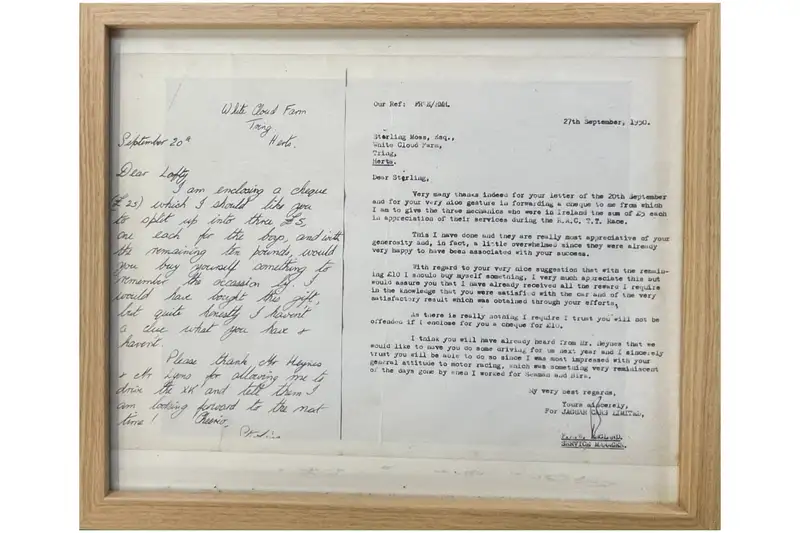 White Cloud Farm
Tring
Herts.
September 20th
Dear Lofty
I am enclosing a cheque
(£25) which I should like you
to split up into three £5,
one each for the boys, and with
the remaining ten pounds, would
you buy yourself something to
remember the occassion by. I
would have bought this gift,
but quite honestly I haven't
a clue what you have &
havent.
Please thank Mr Heynes
& Mr Lyons for allowing me to
drive the XK and tell them I
am looking forward to the next
time! Cheerio.
Our Ref:
27th September, 1950.
Sterling Moss, Esq.,
White Cloud Farm,
Tring,
Herts.
Dear Sterling,
Very many thanks indeed for your letter of the 20th September
and for your very nice gesture in forwarding a cheque to me from which
I am to give the three mechanics who were in Ireland the sum of £5 each
in appreciation of their services during the R.A.C. T.T. Race.
This I have done and they are really most appreciative of your
generosity and, in fact, a little overwhelmed since they were already
very happy to have been associated with your success.
With regard to your very nice suggestion that with the remain-
ing £10 I should buy myself something, I very much appreciate this but
would assure you that I have already received all the reward I require
in the knowledge that you were satisfied with the car and of the very
satisfactory result which was obtained through your efforts.
As there is really nothing I require I trust you will not be
offended if I enclose for you a cheque for £10.
I think you will have already heard from Mr. Heynes that we
would like to have you do some driving for us next year and I sincerely
trust you will be able to do so since I was most impressed with your
general attitude to motor racing, which was something very reminiscent
of the days gone by when I worked for Seaman and Bira.
My very best regards,
Yours sincerely,
For JAGUAR CARS LIMITED,
ENGLAND.
SERVICE MANAGER.